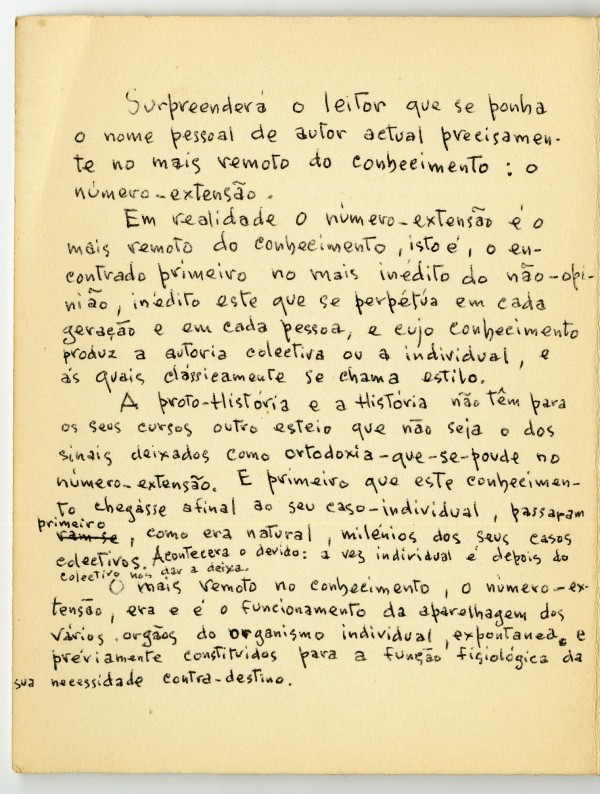 Surpreenderá o leitor que se ponha
o nome pessoal de autor actual precisamen-
te no mais remoto do conhecimento : o
número-extensão.
Em realidade o número-extensão é o
mais remoto do conhecimento, isto é, o en-
contrado primeiro no mais inédito do não-opi-
nião, inédito este que se perpétúa em cada
geração e em cada pessoa, e cujo conhecimento
produz a autoria colectiva ou a individual, e
ás quais clássicamente se chama estilo.
A proto-História e a História não têm para
os seus cursos outro esteio que não seja o dos
sinais deixados como ortodoxia-que-se-poude no
número-extensão. E primeiro que este conhecimen-
to chegásse afinal ao seu caso-individual, passaram
primeiro
ram-se, como era natural, milénios dos seus casos
colectivos. Acontecera o devido: a vez individual é depois do
colectivo nos dar a deixa.
O mais remoto no conhecimento, o número-ex-
tensão, era e é o funcionamento da aparelhagem dos
vários orgãos do organismo individual, expontanea e
préviamente constituidos para a função fisiológica da
sua necessidade contra-destino.